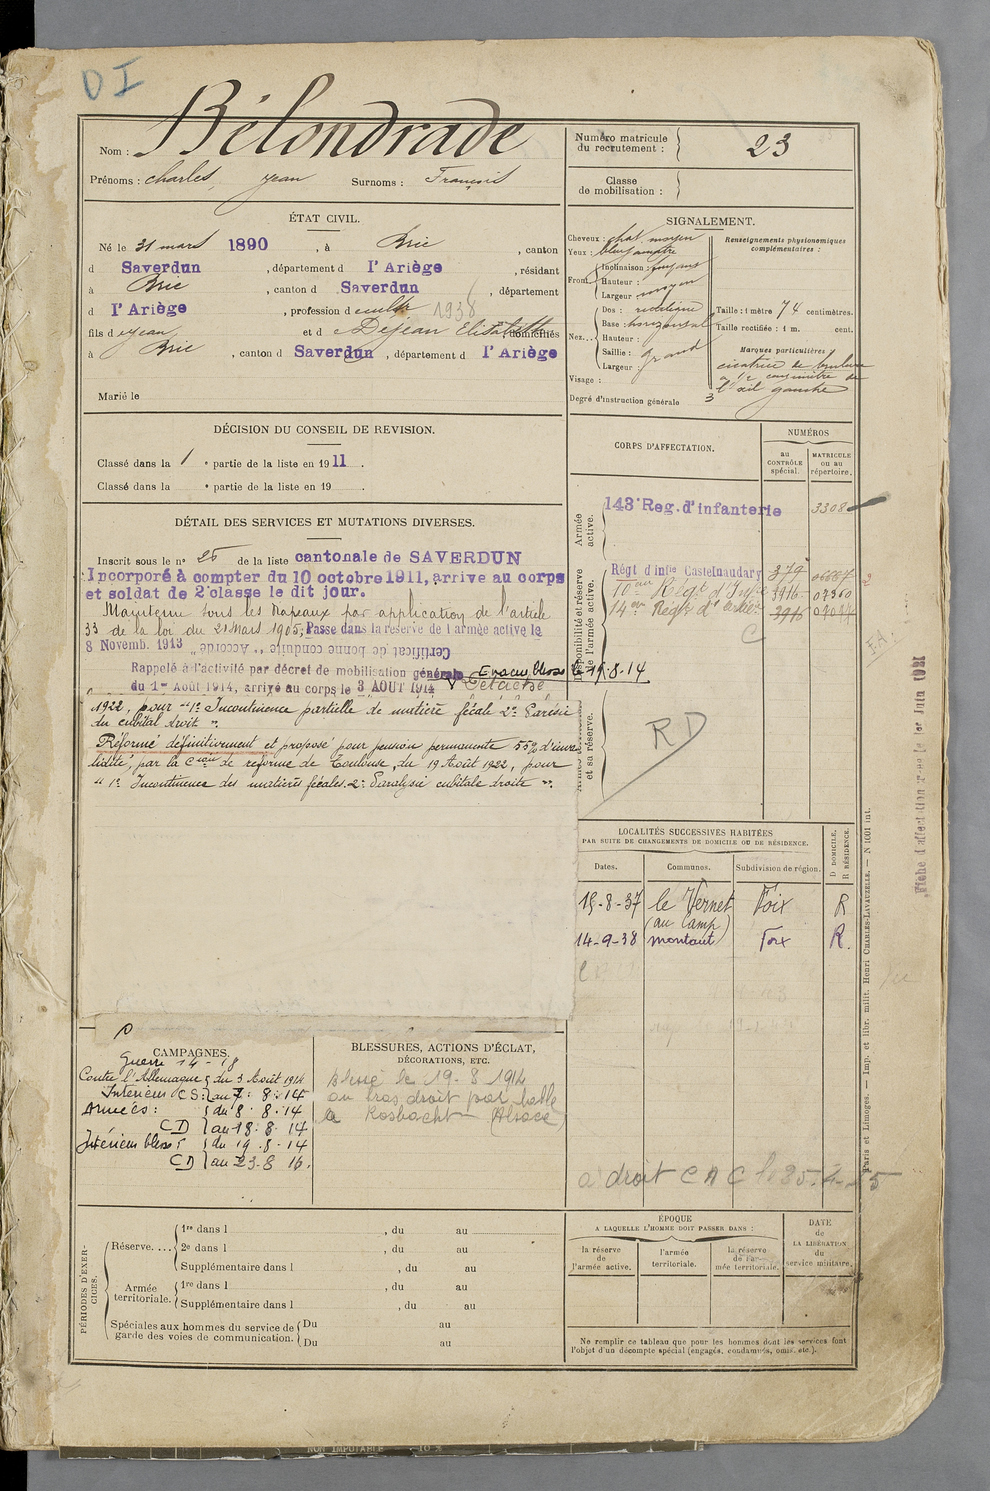 DI
Nom : Bélondrade
Prénoms : charles, jean Surnoms : François
Numéro matricule du recrutement : 23
Classe de mobilisation :
ÉTAT CIVIL.
Né le 31 mars 1890, à Brie, canton
d Saverdun, département d l'Ariège, résidant
à Brie, canton d Saverdun, département
d l'Ariège, profession d cult 1938
fils d jean et d Dejean Elisabeth domiciliés
à Brie, canton d Saverdun, département d l'Ariège
Marié le
SIGNALEMENT.
Cheveux : chat. moyen
Yeux :
Front Inclinaison : fuyant
Hauteur :
Largeur moyen
Nez Dos : rectiligne
Base : horizontal
Hauteur :
Saillie : grand
Largeur :
Visage :
Degré d'instruction générale 3
Renseignements physionomiques complémentaires :
Taille : 1 mètre 74 centimètres.
Taille rectifiée : 1 m. cent.
Marques particulières
cicatrice de brulure
à 1/2 centimètre de
l'œil gauche
DÉCISION DU CONSEIL DE REVISION.
Classé dans la 1 e partie de la liste en 1911.
Classé dans la e partie de la liste en 19
DÉTAIL DES SERVICES ET MUTATIONS DIVERSES.
Inscrit sous le n° 25 de la liste cantonale de SAVERDUN
Incorporé à compter du 10 octobre 1911, arrive au corps
et soldat de 2e classe le dit jour.
Maintenu sous les drapeaux par application de l'article
33 de la loi du 21 Mars 1905; Passé dans la réserve de l'armée active le
8 Novemb. 1913 „Certificat de bonne conduite, „Accordé"
Rappelé à l'activité par décret de mobilisation générale Evacué blessé le 19.8.14
du 1er Août 1914, arrivé au corps le 3 AOUT 1914 Détaché
1922, pour "1° Incontinence partielle de matière fécale 2° Parésie
du cubital droit".
Réformé définitivement et proposé pour pension permanente 55% d'inva-
lidité, par la Cion de réforme de Toulouse, du 19 Août 1922, pour
"1° Incontinence des matières fécales. 2° Paralysie cubitale droite".
CORPS D'AFFECTATION.
NUMÉROS
au CONTRÔLE spécial.
MATRICULE ou au répertoire.
Armée active.
143e Reg. d'infanterie 3308
Disponibilité et réserve de l'armée active.
Régt d'infie Castelnaudary 379
10eme Régt d'Infie 3916 07360
14eme Régt d'
C
et sa réserve.
RD
Fiche d'affectation 1er Juin 1921
LOCALITÉS SUCCESSIVES HABITÉES
PAR SUITE DE CHANGEMENTS DE DOMICILE OU DE RÉSIDENCE.
Dates. Communes. Subdivision de région. D DOMICILE. R RÉSIDENCE.
19-8-37 le Vernet (au Camp) Foix R
14-9-38 montaut Foix R.
CAMPAGNES.
Guerre 14-18
Contre l'Allemagne du 3 Août 1914
Intérieur CS: au 7. 8. 14
Armées: du 8. 8. 14
CD au 18. 8. 14
Intérieur blessé du 19. 8. 14
CD au 23. 8. 16.
BLESSURES, ACTIONS D'ÉCLAT,
DÉCORATIONS, ETC.
Blessé le 19-8 1914
au bras droit par balle
à Rosbacht (Alsace)
a droit CAC
PÉRIODES D'EXERCICES.
Réserve.... 1re dans l , du au
2e dans l , du au
Supplémentaire dans l , du au
Armée territoriale. 1re dans l , du au
Supplémentaire dans l , du au
Spéciales aux hommes du service de garde des voies de communication. Du au
Du au
ÉPOQUE
A LAQUELLE L'HOMME DOIT PASSER DANS :
la réserve de l'armée active.
l'armée territoriale.
la réserve de l'armée territoriale.
DATE de LA LIBÉRATION du service militaire.
Ne remplir ce tableau que pour les hommes dont les services font
l'objet d'un décompte spécial (engagés, condamnés, omis, etc.).
Paris et Limoges. — Imp. et libr. milit. Henri CHARLES-LAVAUZELLE. — N 1001 int.
NON IMPUTABLE